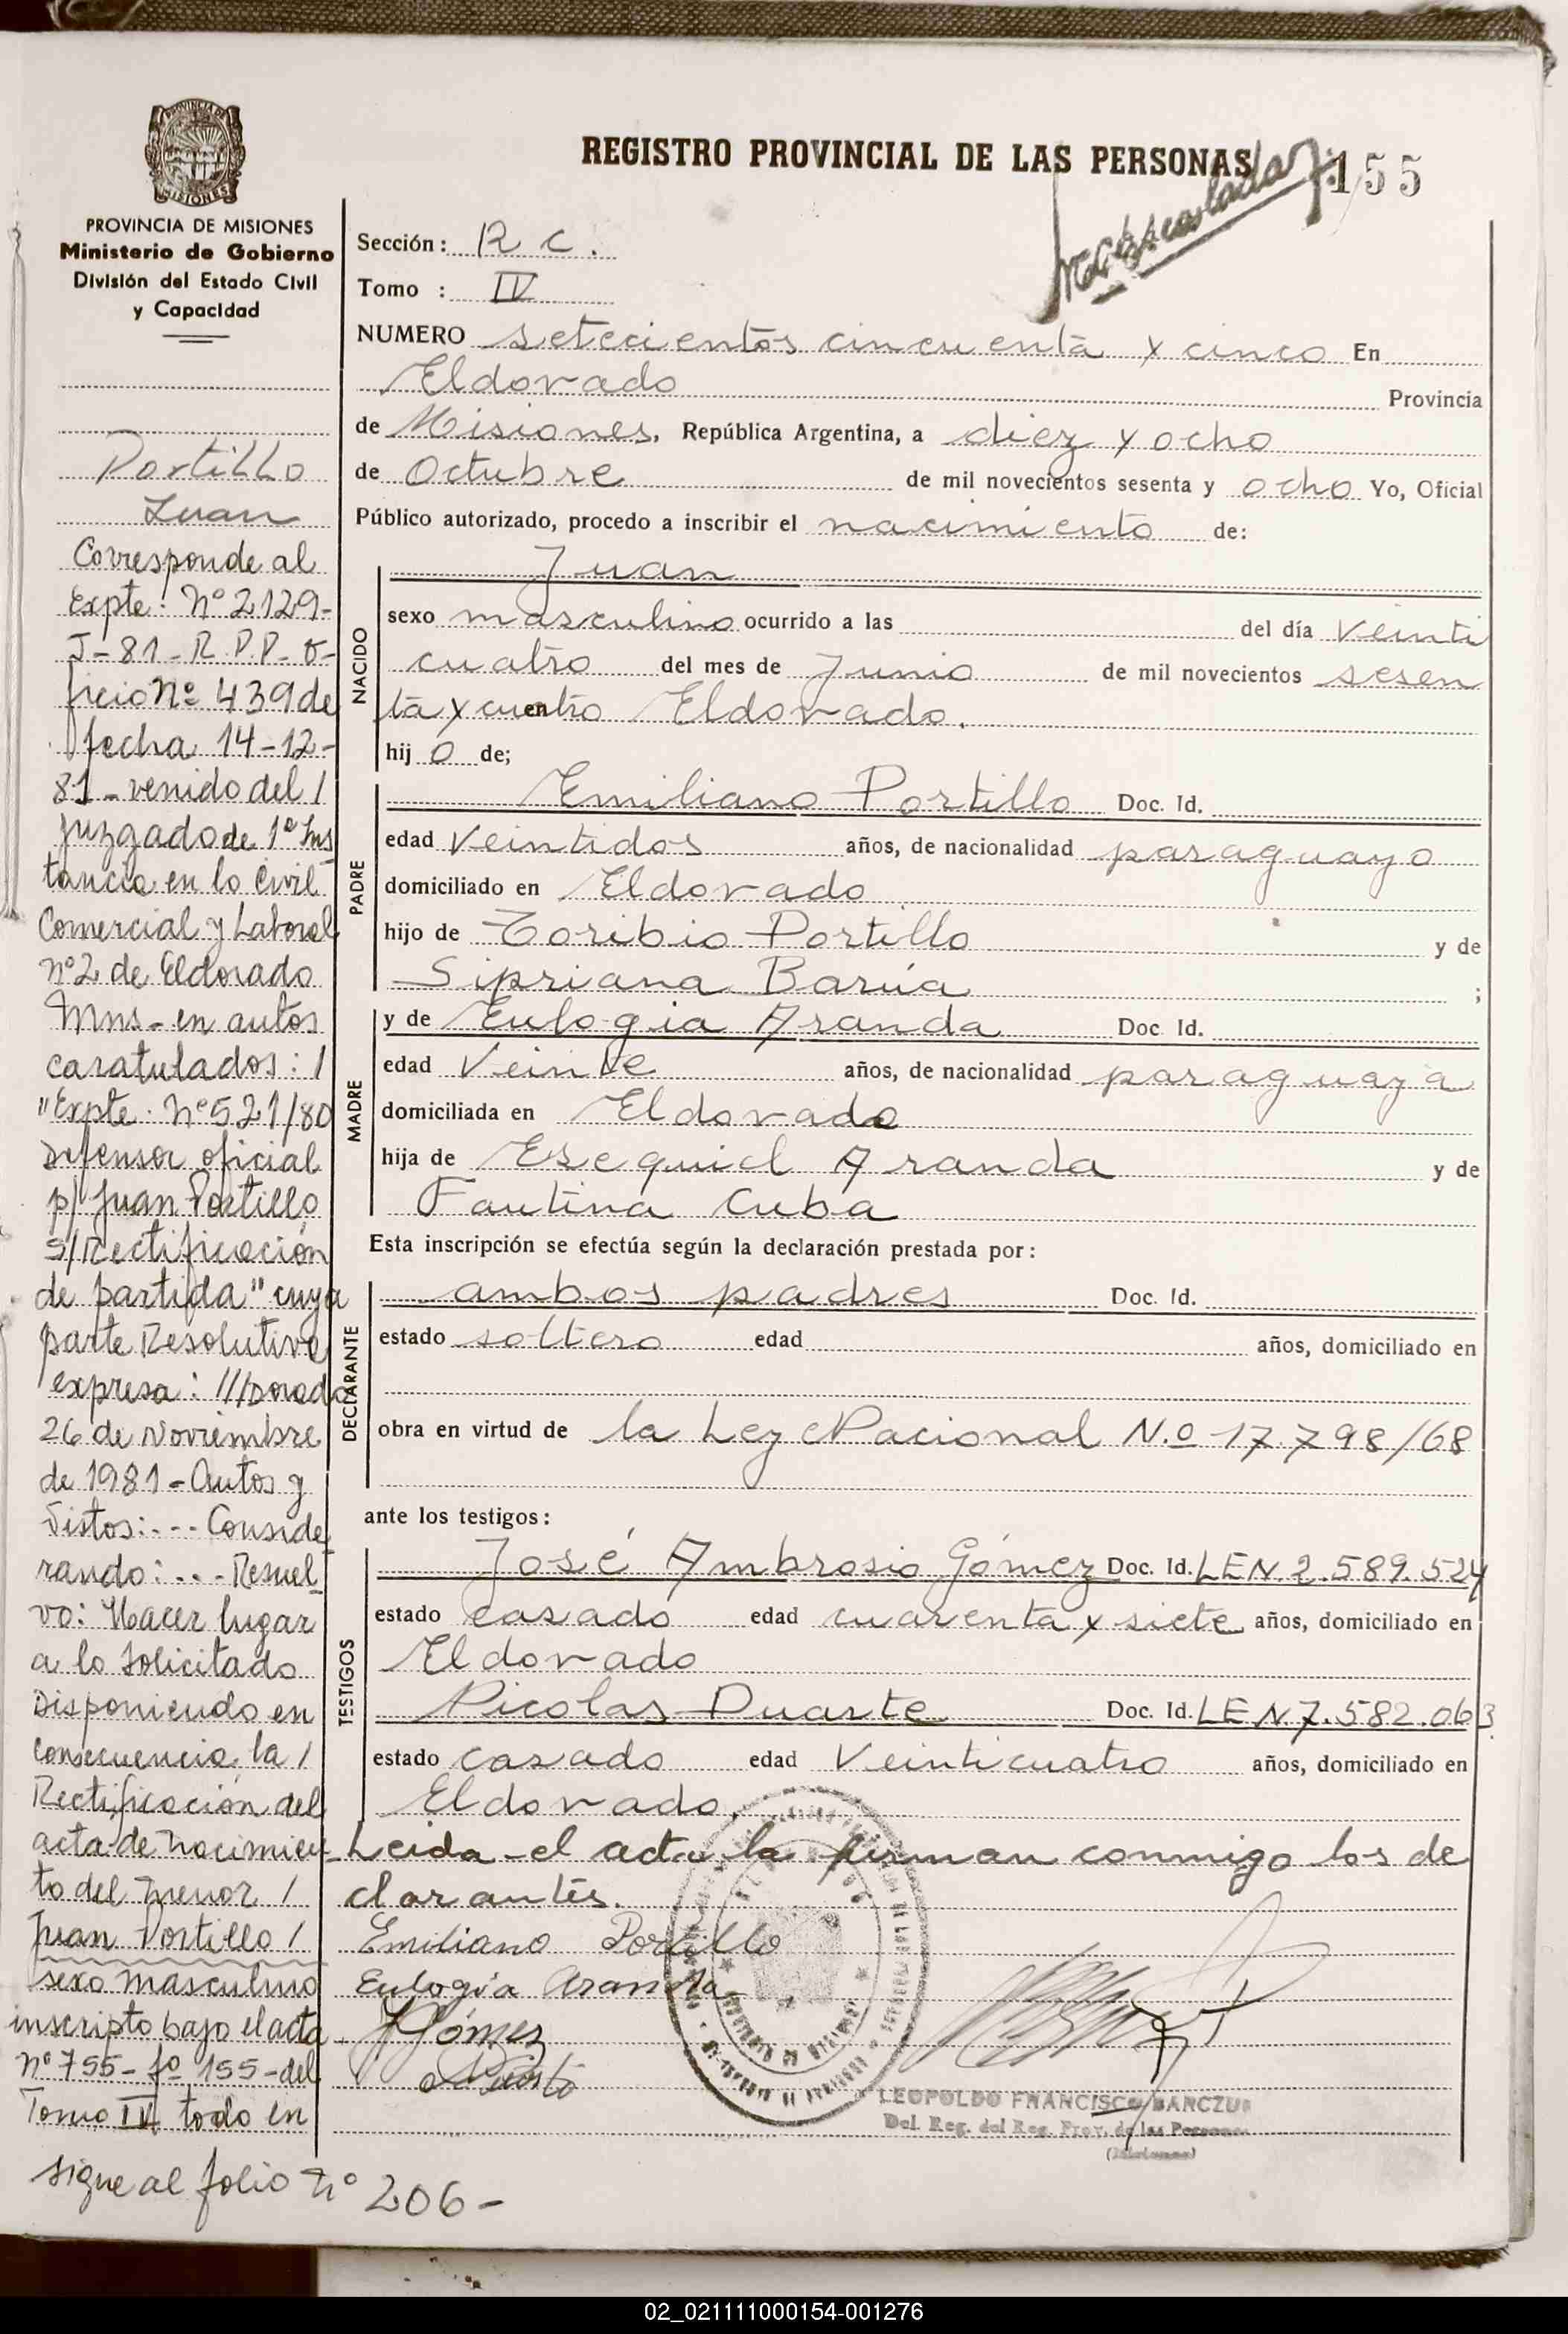 REGISTRO PROVINCIAL DE LAS PERSONAS
155
PROVINCIA DE MISIONES
Ministerio de Gobierno
División del Estado Civil
y Capacidad
Portillo
Juan
Corresponde al
Expte: Nº 2129-
J-81-R.P.P. O-
ficio Nº 439 de
fecha 14-12-
81 - venido del /
Juzgado de 1º Ins
tancia en lo Civil
Comercial y Laboral
nº2 de Eldorado
Mns - en autos
caratulados: /
"Expte: Nº 521/80
Defensor oficial
p/ Juan Portillo
s/ Rectificación
de partida" cuya
parte Resolutiva
expresa: "//Dorado
26 de Noviembre
de 1981 - Autos y
Vistos: --- Conside
rando: --- Resuel
vo: Hacer lugar
a lo Solicitado
Disponiendo en
consecuencia la /
Rectificación del
acta de nacimien-
to del menor /
Juan Portillo /
sexo masculino
inscripto bajo el acta
Nº 755 - fº 155 - del
Tomo IV todo en
sigue al folio Nº 206 -
Sección: R C.
Tomo : IV
NUMERO setecientos cincuenta y cinco En
Eldorado Provincia
de Misiones, República Argentina, a diez y ocho
de Octubre de mil novecientos sesenta y ocho Yo, Oficial
Público autorizado, procedo a inscribir el nacimiento de:
NACIDO
Juan
sexo masculino ocurrido a las del día Veinti
cuatro del mes de Junio de mil novecientos sesen
ta y cuatro Eldorado.
hij o de;
PADRE
Emiliano Portillo Doc. Id.
edad Veintidos años, de nacionalidad paraguayo
domiciliado en Eldorado
hijo de Toribio Portillo y de
Sipriana Barúa ;
MADRE
y de Eulogia Aranda Doc. Id.
edad Veinte años, de nacionalidad paraguaya
domiciliada en Eldorado
hija de Esequiel Aranda y de
Fautina Cuba
Esta inscripción se efectúa según la declaración prestada por:
DECLARANTE
ambos padres Doc. Id.
estado soltero edad años, domiciliado en
obra en virtud de la Ley Nacional N.º 17.798/68
ante los testigos:
TESTIGOS
José Ambrosio Gómez Doc. Id. LEN 2.589.524
estado casado edad cuarenta y siete años, domiciliado en
Eldorado
Nicolas Duarte Doc. Id. LEN 7.582.063
estado casado edad Veinticuatro años, domiciliado en
Eldorado.
Leida el acta la firman conmigo los de
clarantes.
Emiliano Portillo
Eulogia Aranda
JGómez
LEOPOLDO FRANCISCO
Del. Reg. del Reg. Prov. de las Personas
02_021111000154-001276